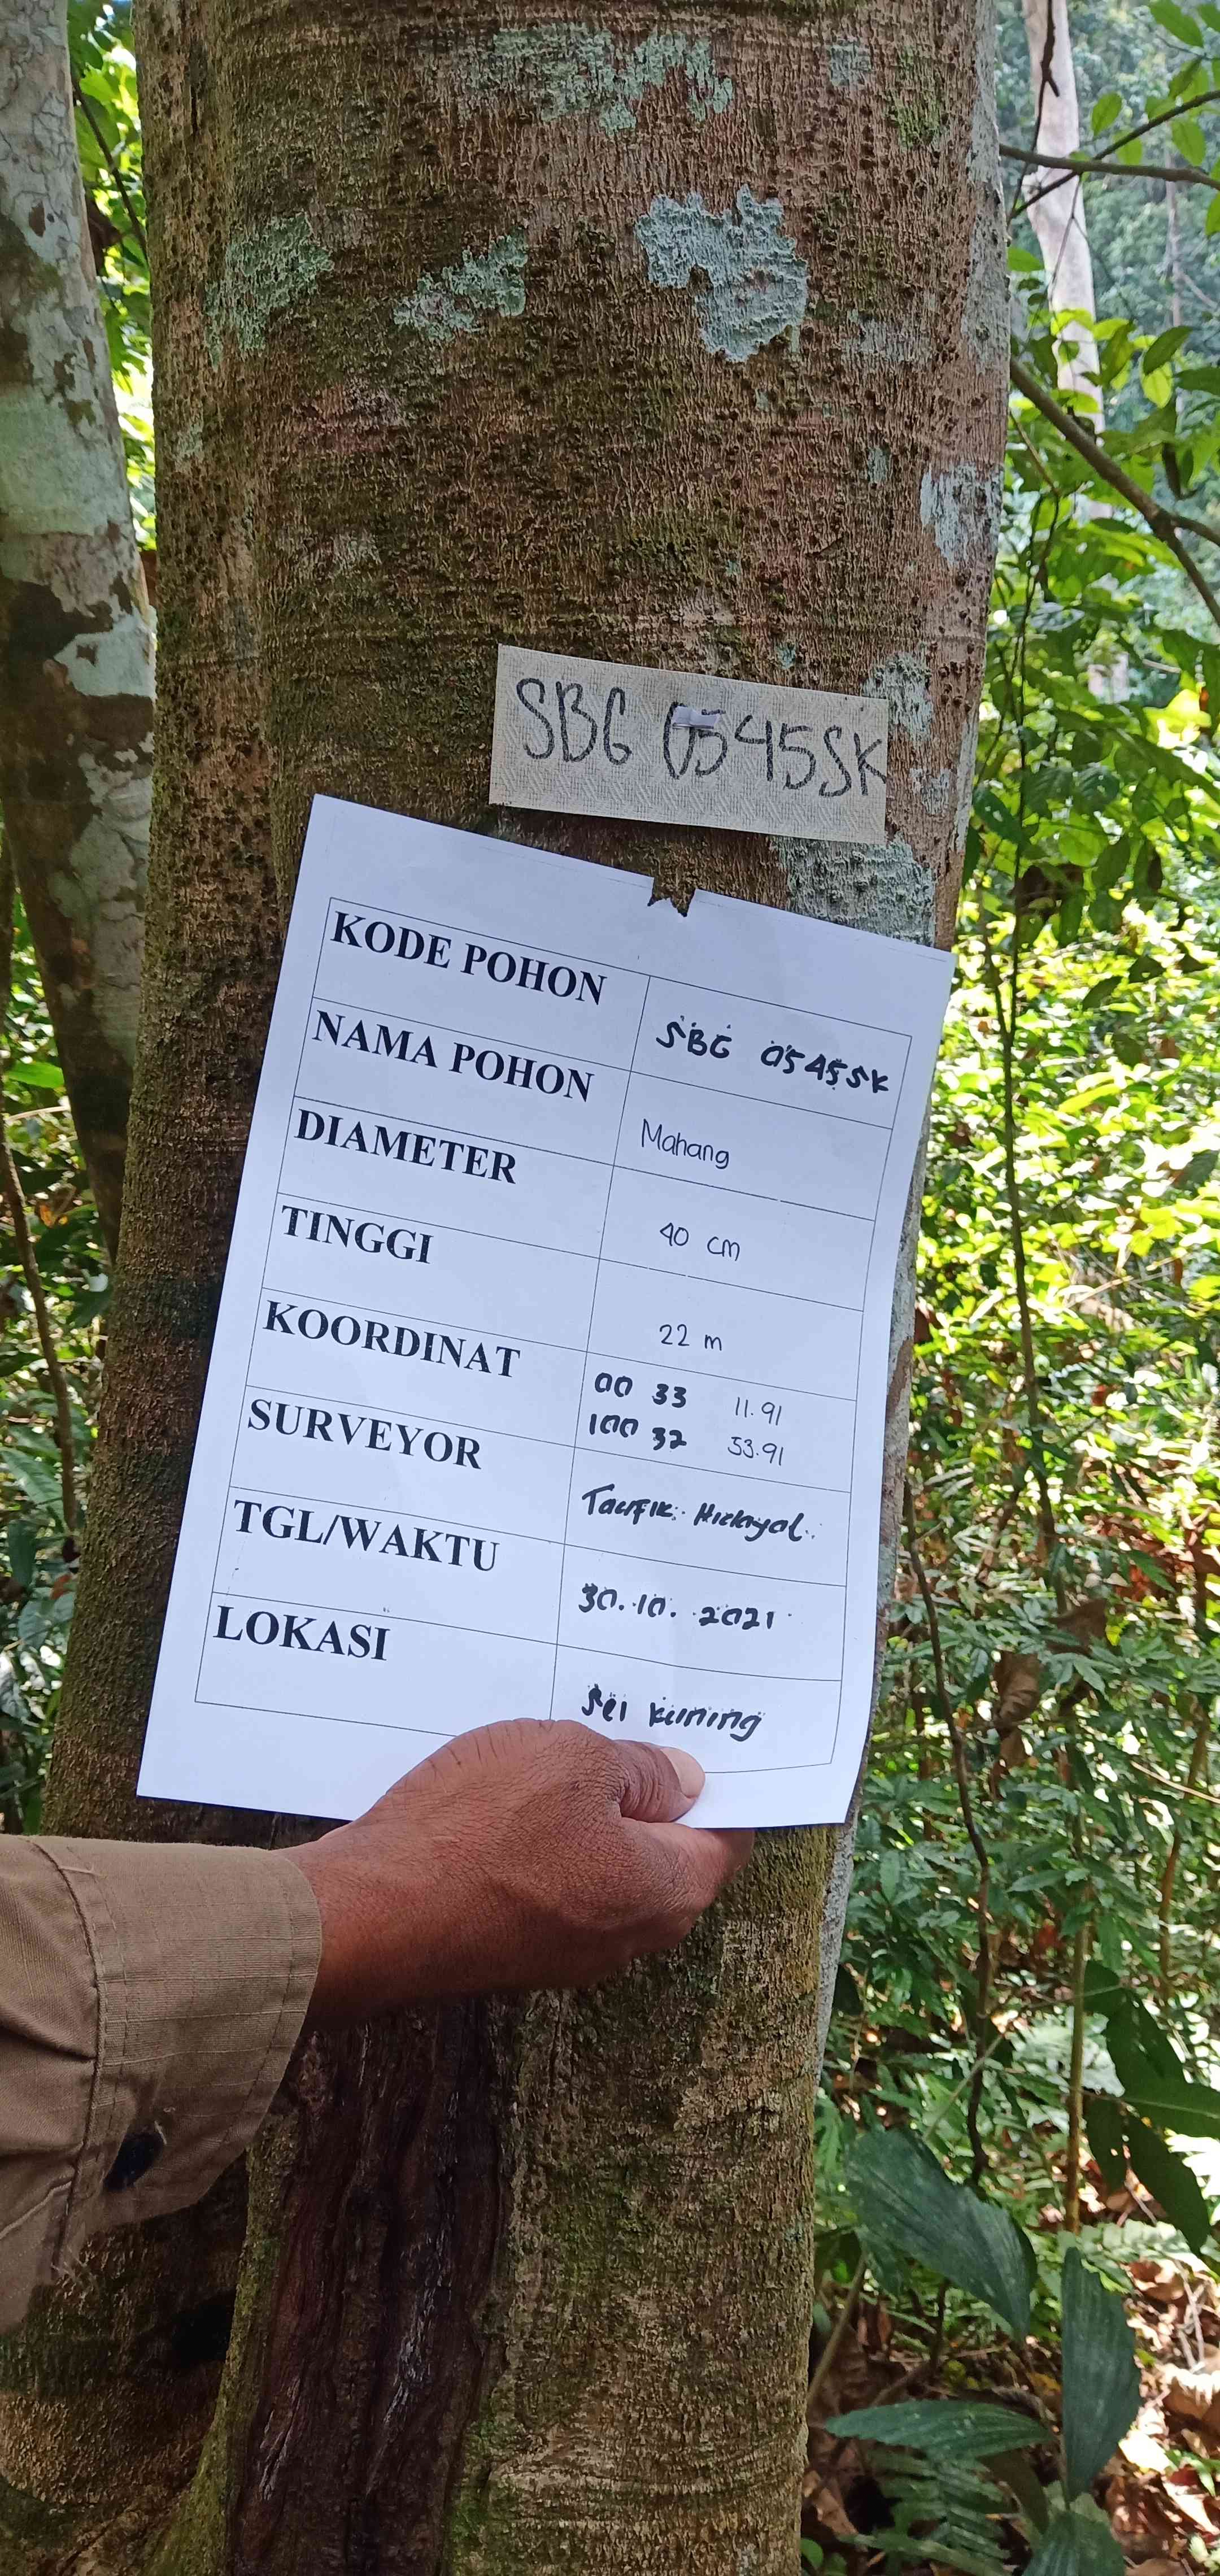 SBG 0545SK
KODE POHON SBG 0545SK
NAMA POHON Mahang
DIAMETER 40 cm
TINGGI 22 m
KOORDINAT 00 33 11.91
100 32 53.91
SURVEYOR Taufik Hidayat
TGL/WAKTU 30.10.2021
LOKASI Sei Kuning